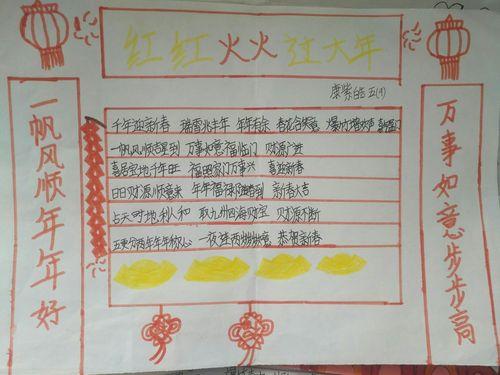 红红火火过大年
康紫皓 五(4)
一帆风顺年年好
千年迎新春 瑞雪兆丰年 年年有余 春花含笑意 爆竹增欢声 喜盈门
一帆风顺吉星到 万事如意福临门 财源广进
喜居宝地千年旺 福照家门万事兴 喜迎新春
日日财源顺意来 年年福禄随春到 新春大吉
占天时地利人和 取九州四海财宝 财源不断
五更分两年年称心 一夜连两岁岁如意 恭贺新春
万事如意步步高